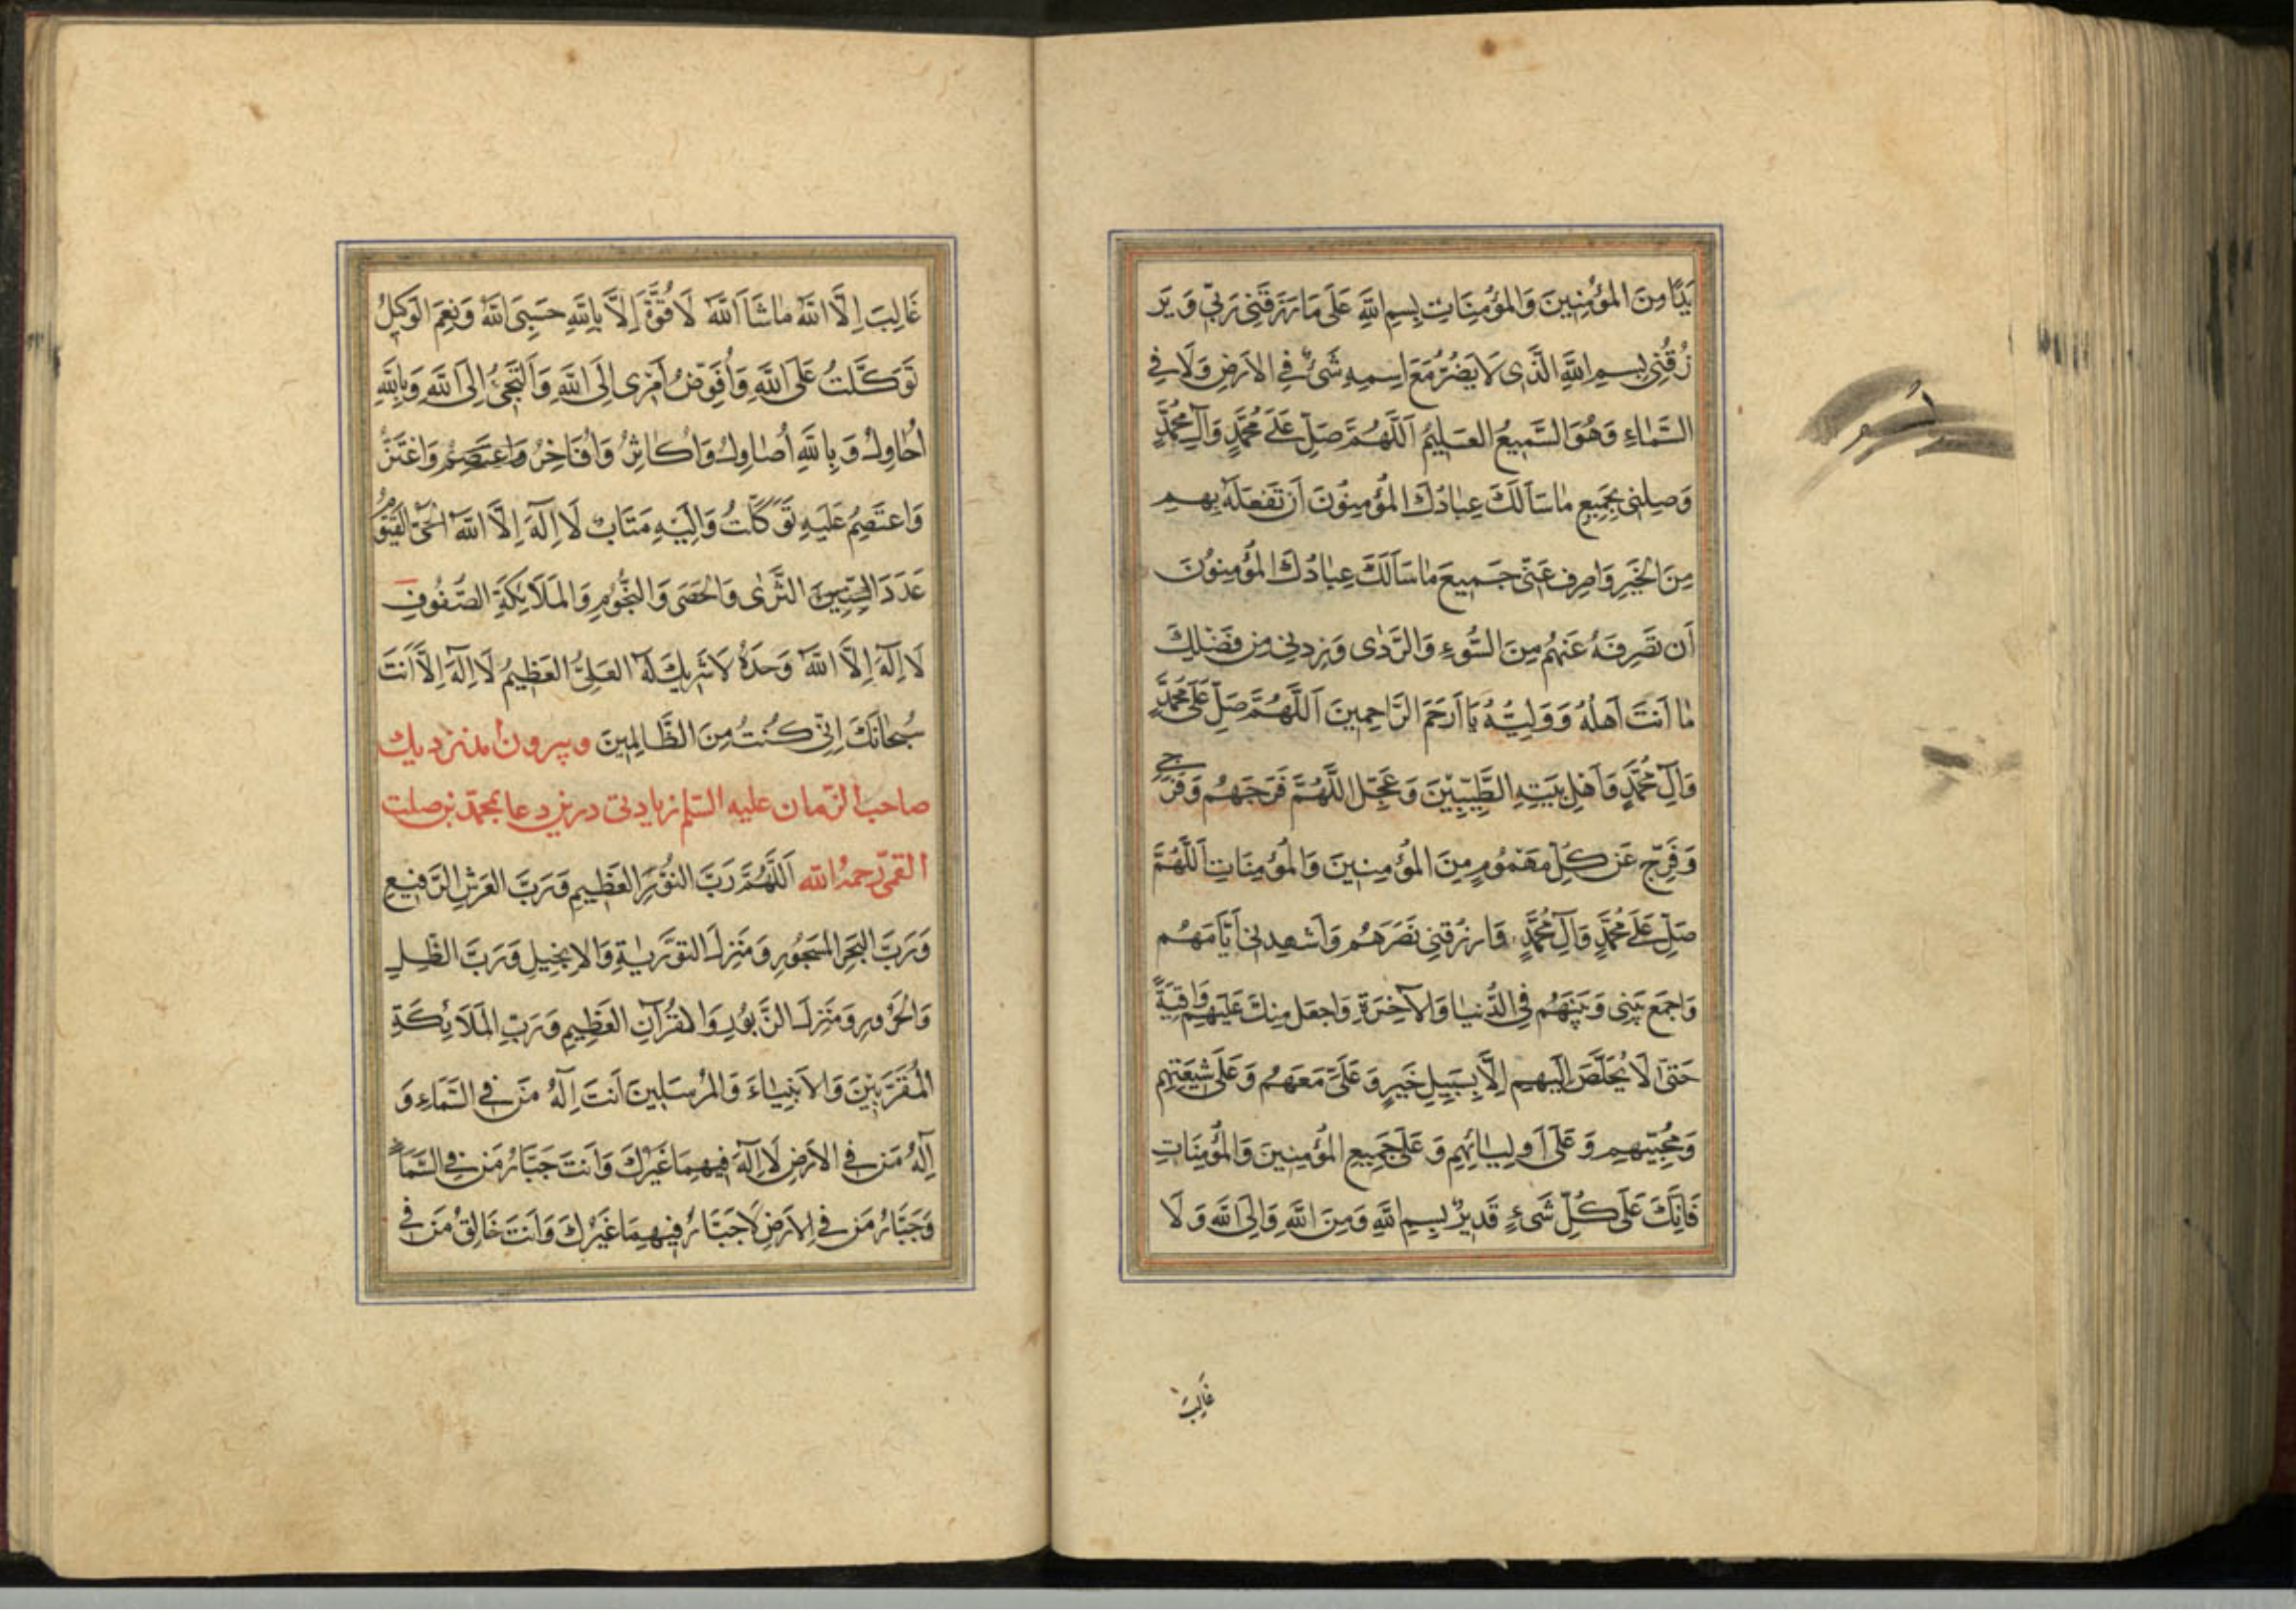 يَدًا مِنَ المُؤْمِنِينَ وَالمُؤْمِنَاتِ بِسمِ اللهِ عَلَى مَا رَزَقَنِى رَبّى وَ يَر
زُقُنِى بِسمِ اللهِ الَّذِى لَا يَضُرُّ مَعَ اسمِهِ شَىْءٌ فِى الاَرضِ وَلَا فِى
السَّمَاءِ وَهُوَ السَّمِيعُ العَلِيمُ اَللَّهُمَّ صَلِّ عَلَى مُحَمَّدٍ وَآلِ مُحَمَّدٍ
وَصِلنِى بِجَمِيعِ مَا سَاَلَكَ عِبَادُكَ المُؤْمِنُونَ اَن تَفعَلَهُ بِهِم
مِنَ الخَيرِ وَاصرِف عَنّى جَمِيعَ مَا سَاَلَكَ عِبَادُكَ المُؤْمِنُونَ
اَن تَصرِفَهُ عَنهُم مِنَ السُّوءِ وَالرَّدٰى وَزِدنِى مِن فَضلِكَ
مَا اَنتَ اَهلُهُ وَوَلِيُّهُ يَا اَرحَمَ الرَّاحِمِينَ اَللَّهُمَّ صَلِّ عَلَى مُحَمَّدٍ
وَآلِ مُحَمَّدٍ وَاَهلِ بَيتِهِ الطَّيِّبِينَ وَعَجِّلِ اللَّهُمَّ فَرَجَهُم وَفَرَجِى
وَفَرِّج عَن كُلِّ مَهمُومٍ مِنَ المُؤْمِنِينَ وَالمُؤْمِنَاتِ اَللَّهُمَّ
صَلِّ عَلَى مُحَمَّدٍ وَآلِ مُحَمَّدٍ وَارزُقنِى نَصرَهُم وَاَشهِدنِى اَيَّامَهُم
وَاجمَع بَينِى وَبَينَهُم فِى الدُّنيَا وَالآخِرَةِ وَاجعَل مِنكَ عَلَيهِم وَاقِيَةً
حَتّى لَا يُخلَصَ اِلَيهِم اِلَّا بِسَبِيلِ خَيرٍ وَعَلَىَّ مَعَهُم وَعَلَى شِيعَتِهِم
وَمُحِبِّيهِم وَعَلَى اَولِيَائِهِم وَعَلَى جَمِيعِ المُؤْمِنِينَ وَالمُؤْمِنَاتِ
فَاِنَّكَ عَلَى كُلِّ شَىْءٍ قَدِيرٌ بِسمِ اللهِ وَمِنَ اللهِ وَاِلَى اللهِ وَلَا
غَالِبَ
غَالِبَ اِلَّا اللهُ مَا شَاءَ اللهُ لَا قُوَّةَ اِلَّا بِاللهِ حَسبِىَ اللهُ وَنِعمَ الوَكِيلُ
تَوَكَّلتُ عَلَى اللهِ وَاُفَوِّضُ اَمرِى اِلَى اللهِ وَاَلتَجِئُ اِلَى اللهِ وَبِاللهِ
اُحَاوِلُ وَبِاللهِ اُصَاوِلُ وَاُكَاثِرُ وَاُفَاخِرُ وَاعتَصِمُ وَاَعتَزُّ
وَاعتَصِمُ عَلَيهِ تَوَكَّلتُ وَاِلَيهِ مَتَابِ لَا اِلَهَ اِلَّا اللهُ الحَىُّ القَيُّومُ
عَدَدَ الثَّرٰى وَالحَصَى وَالنُّجُومِ وَالمَلَائِكَةِ الصُّفُوفِ
لَا اِلَهَ اِلَّا اللهُ وَحدَهُ لَا شَرِيكَ لَهُ العَلِىُّ العَظِيمُ لَا اِلَهَ اِلَّا اَنتَ
سُبحَانَكَ اِنّى كُنتُ مِنَ الظَّالِمِينَ و بيرون آمد نزديك
صاحب الزمان عليه السلم زيادتى درين دعا بمحمد بن صلت
القمى رحمه الله اَللَّهُمَّ رَبَّ النُّورِ العَظِيمِ وَرَبَّ العَرشِ الرَّفِيعِ
وَرَبَّ البَحرِ المَسجُورِ وَمُنزِلَ التَّورَيةِ وَالاِنجِيلِ وَرَبَّ الظِّلِّ
وَالحَرُورِ وَمُنزِلَ الزَّبُورِ وَالقُرآنِ العَظِيمِ وَرَبَّ المَلَائِكَةِ
المُقَرَّبِينَ وَالاَنبِيَاءِ وَالمُرسَلِينَ اَنتَ اِلَهُ مَن فِى السَّمَاءِ وَ
اِلَهُ مَن فِى الاَرضِ لَا اِلَهَ فِيهِمَا غَيرُكَ وَاَنتَ جَبَّارُ مَن فِى السَّمَاءِ
وَجَبَّارُ مَن فِى الاَرضِ لَا جَبَّارَ فِيهِمَا غَيرُكَ وَاَنتَ خَالِقُ مَن فِى